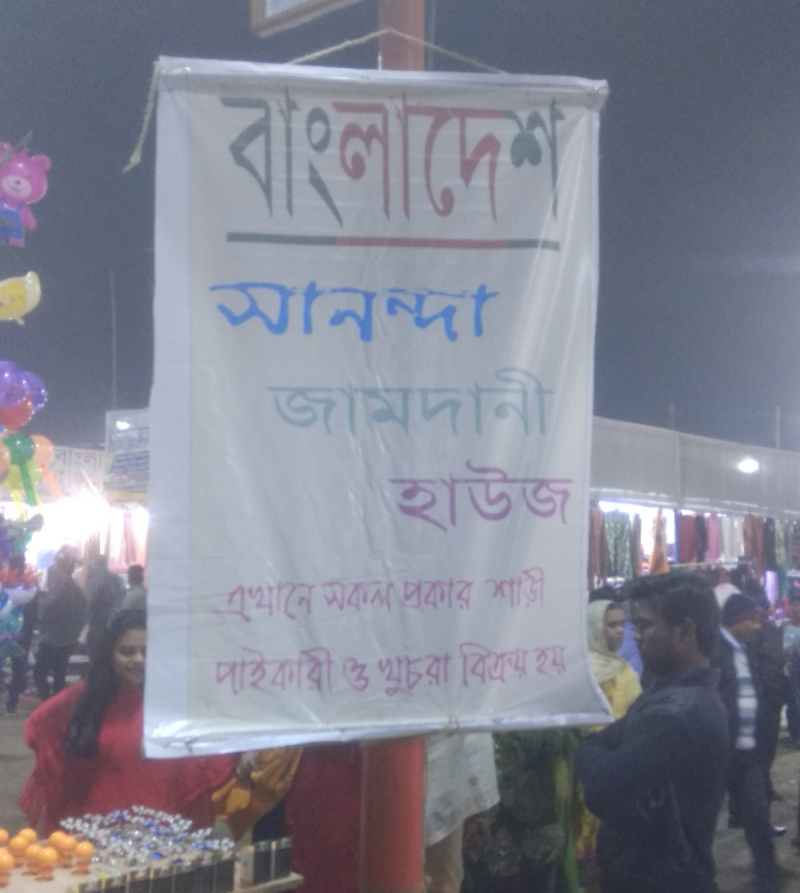 বাংলাদেশ
সানন্দা
জামদানী
হাউজ
এখানে সকল প্রকার শাড়ী
পাইকারী ও খুচরা বিক্রয় হয়